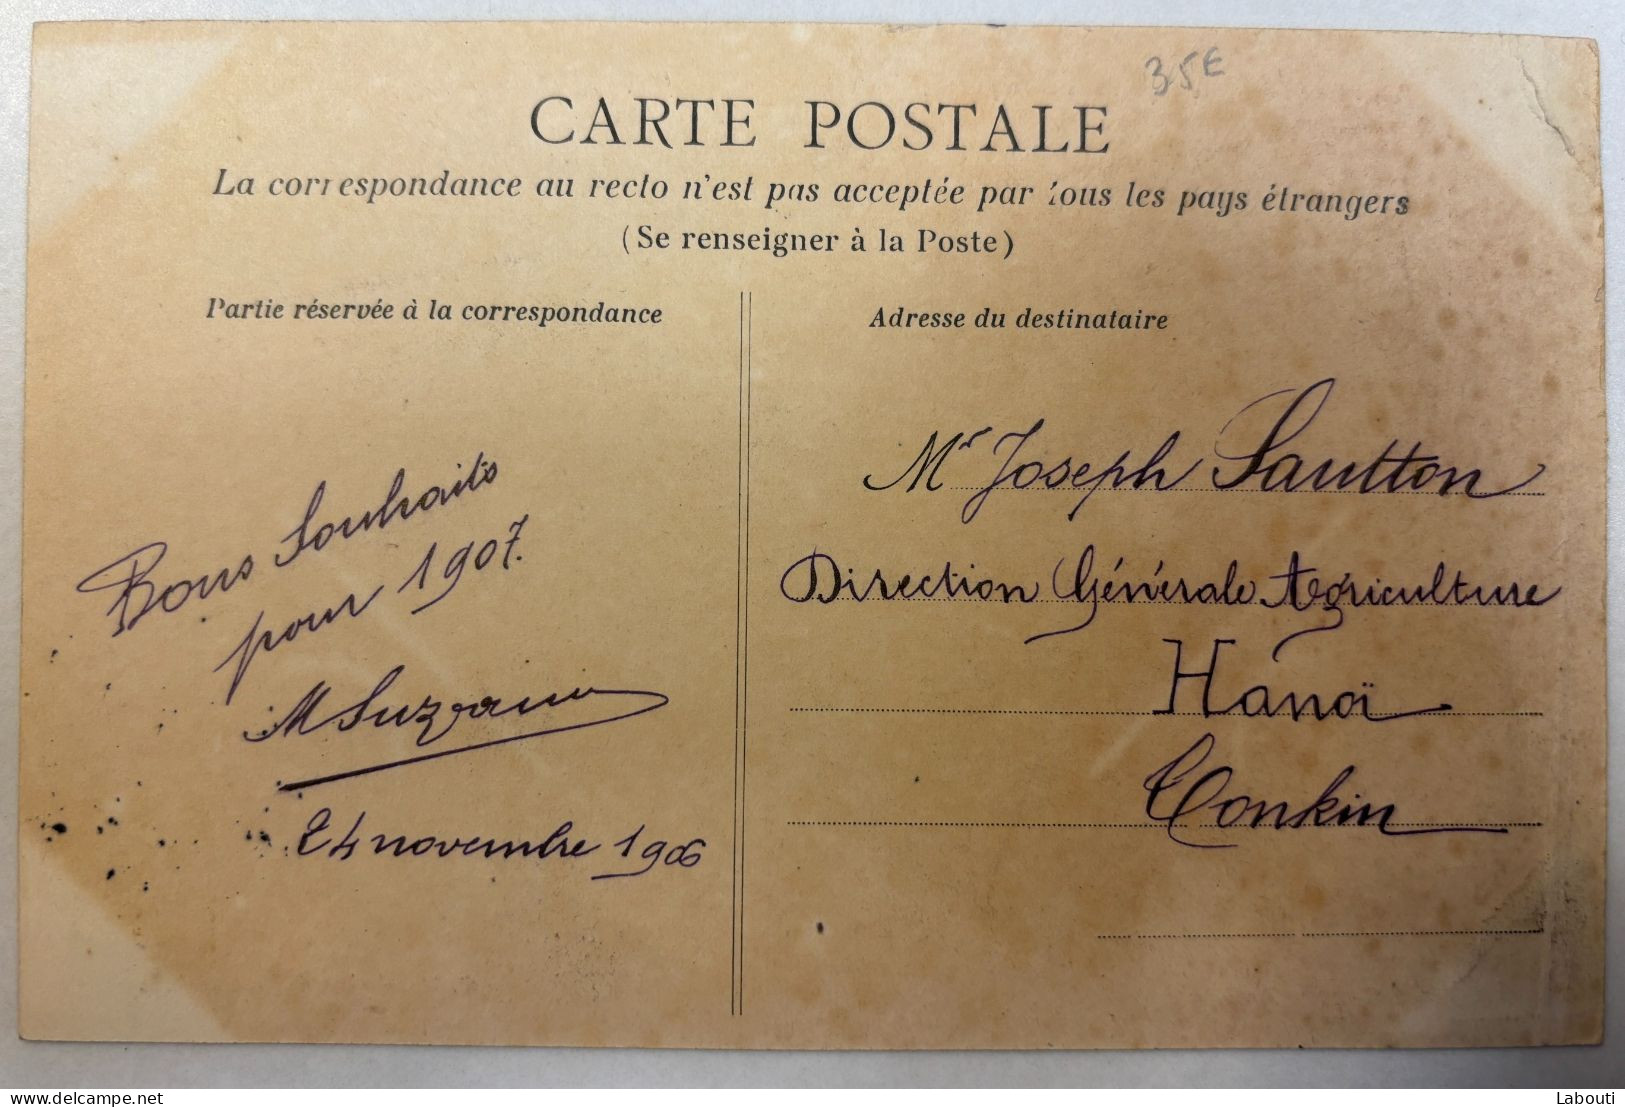 35€
CARTE POSTALE
La correspondance au recto n'est pas acceptée par tous les pays étrangers
(Se renseigner à la Poste)
Partie réservée à la correspondance
Bons Souhaits
pour 1907.
24 novembre 1906
Adresse du destinataire
Mr Joseph Sautton
Direction Générale Agriculture
Hanoï
Tonkin
www.delcampe.net
Labouti